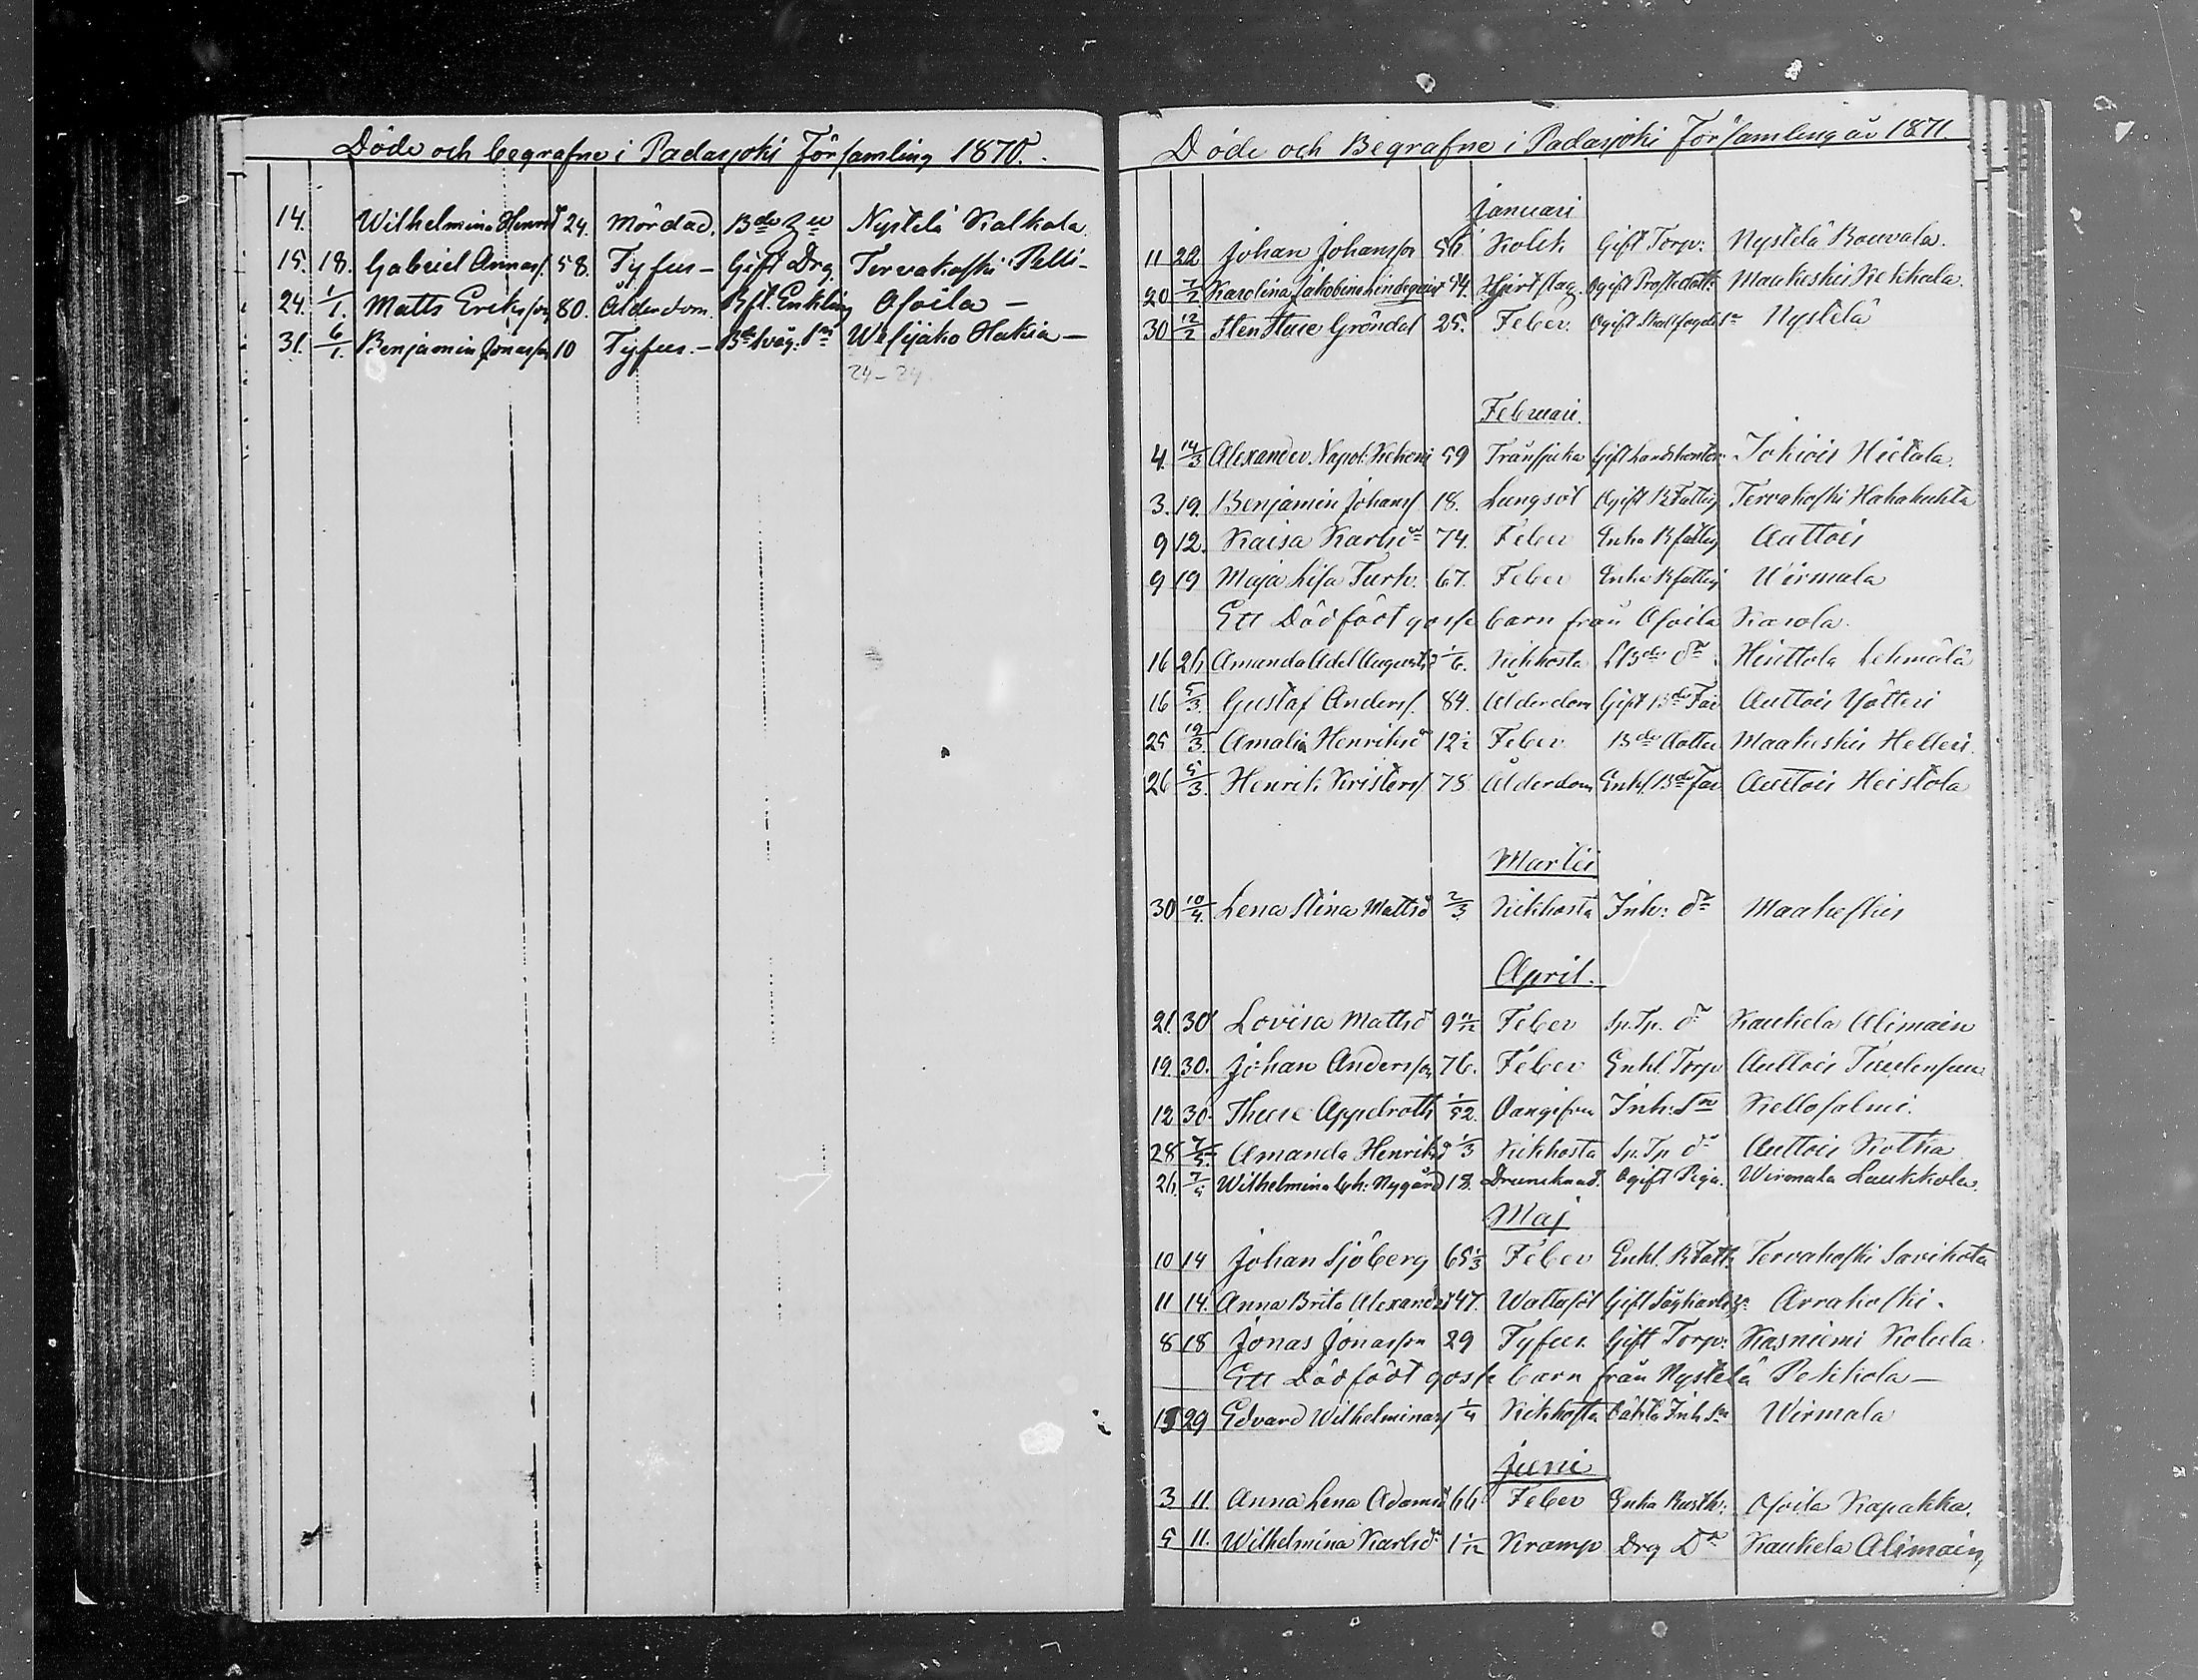 Döde och begrafne i Padasjoki Församling 1870.
14. Wilhelmina Henrd 24. Mördad. Bde Nystelä Kalkala
15. 18. Gabriel Annass. 58. Tyfus - Gift Drg. Tervakoski Pelli-
24. 1/1. Matts Eriksson 80. Ålderdom. Rft. Enkling Osoila -
31. 6/1. Benjamin Jonasson 10 Tyfus. - Bde svåg: sn Wesijako Hakia -
24 - 24.
Döde och Begrafne i Padasjoki Församling år 1871.
Januari
11 22. Johan Johansson 56 Kolik Gift Torp: Nystelä Bouvala.
20 Karolina Jakobina Lindeqvist 54. Hjertslag. Ogift Prostedott: Maakeskis Kekkala.
30 12/2 Sten Sture Gröndal 25. Feber. Ogift Nystelä
Februari.
4. 14/3 Alexander Napol. 59 Transjuka Gift Landtkontor: Jokiois Hietala.
3. 19. Benjamin Johanss 18. Lungsot Ogift RFattig Tervakoski Hahakuhta
9 12. Kaisa Karlsd 74. Feber Enka Rfattig Auttois
9 19 Maja Lisa Turk. 67. Feber Enka Rfattig Wirmala
Ett Dödfödt gosse barn från Osoila Karola.
16 26 Amanda Adel Augustsd 1/6. Kikhosta dr Hinttola Lehmälä
16 5/3. Gustaf Anderss. 84. Ålderdom Gift Bde Far Auttois Yötteri
25 19/3. Amalia Henriksd 12 1/2 Feber Bde dotter Maakeskis Helleri.
26 5/3. Henrik Kristerss 75 Ålderdom Enkl. Bde far Auttois Heistola
Martii
30 10/4. Lena Stina Mattsd 2/3 Kikhosta Inh: dr Maakeskis
April.
21. 30 Lovisa Mattsd 9 11/12 Feber Sp. Tp. dr Kaukela Alimain
19. 30. Johan Andersson 76. Feber Enkl. Torp Auttois Tuulensuu
12 30. Thure Appelroth 1/52. Oangifven Inh: Sn Kellosalmi.
28 7/5. Amanda Henriksd 1/3 Kikhosta Sp. Tp dr Auttois Kotka
26. 7/5 Wilhelmina Nygård 18. Drunknad. Ogift Piga. Wirmala Laukkola.
Maj
10 14 Johan Sjöberg 65 1/3 Feber Enkl. RFatt: Tervakoski Savikota
11 14. Anna Brita Alexandsd 47. Wattusot Gift Sågkarls Arrakoski.
8 18 Jonas Jonasson 29 Tyfus. Gift Torp: Kasniemi Kokela.
Ett Dödfödt gosse barn från Nystelä Pekkola -
15 29 Edvard Wilhelminass 1/4 Kikhosta Oäkta Inh. Sn Wirmala
Juni
3 11. Anna Lena Adamsd 66 Feber Enka Rusth: Osoila Kapakka.
5 11. Wilhelmina Karlsdr 1 1/12 Kramp Drg Dr Kaukela Alimain